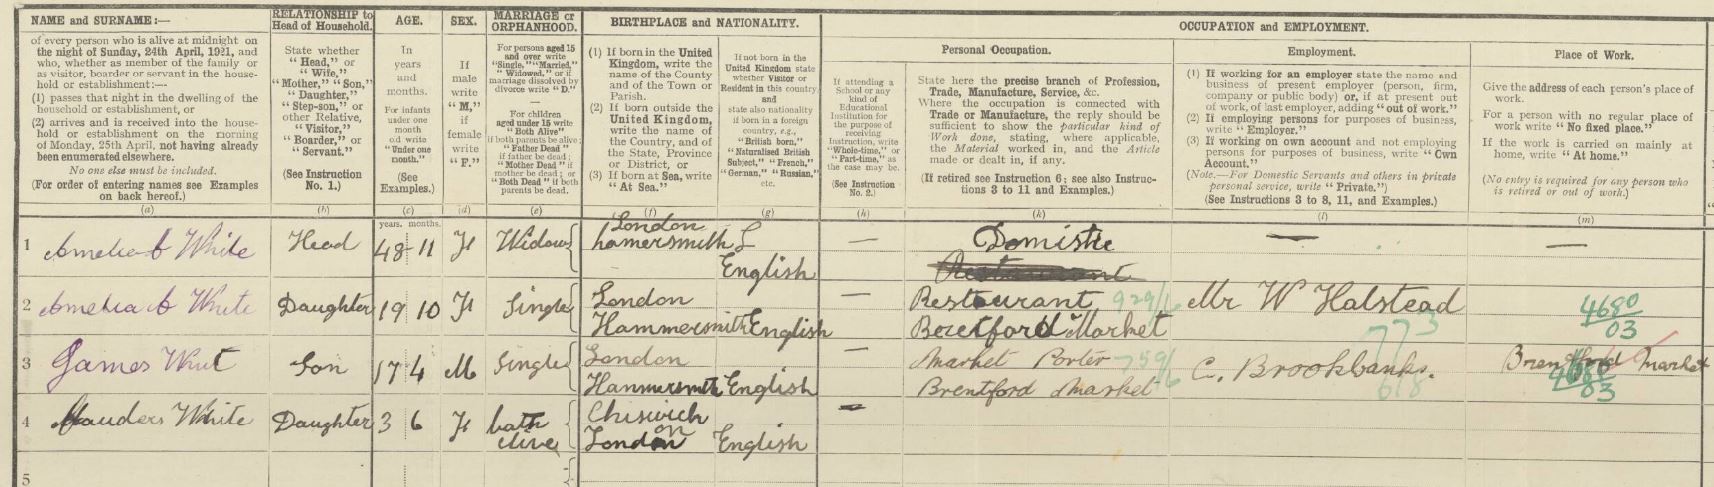 NAME and SURNAME:—
of every person who is alive at midnight on
the night of Sunday, 24th April, 1921, and
who, whether as member of the family or
as visitor, boarder or servant in the house-
hold or establishment:—
(1) passes that night in the dwelling of the
household or establishment, or
(2) arrives and is received into the house-
hold or establishment on the morning
of Monday, 25th April, not having already
been enumerated elsewhere.
No one else must be included.
(For order of entering names see Examples
on back hereof.)
(a)
RELATIONSHIP to
Head of Household.
State whether
"Head," or
"Wife,"
"Mother," "Son,"
"Daughter,"
"Step-son," or
other Relative,
"Visitor,"
"Boarder," or
"Servant."
(See Instruction
No. 1.)
(b)
AGE.
In
years
and
months.
For infants
under one
month
old write
"Under one
month."
(See
Examples.)
(c)
years. months.
SEX.
If
male
write
"M,"
if
female
write
"F."
(d)
MARRIAGE or
ORPHANHOOD.
For persons aged 15
and over write
"Single," "Married,"
"Widowed," or if
marriage dissolved by
divorce write "D."
—
For children
aged under 15 write
"Both Alive"
if both parents be alive;
"Father Dead"
if father be dead;
"Mother Dead" if
mother be dead; or
"Both Dead" if both
parents be dead.
(e)
BIRTHPLACE and NATIONALITY.
(1) If born in the United
Kingdom, write the
name of the County
and of the Town or
Parish.
(2) If born outside the
United Kingdom,
write the name of
the Country, and of
the State, Province
or District, or
(3) If born at Sea, write
"At Sea."
(f)
If not born in the
United Kingdom state
whether Visitor or
Resident in this country
and
state also nationality
if born in a foreign
country, e.g.,
"British born,"
"Naturalised British
Subject," "French,"
"German," "Russian,"
etc.
(g)
OCCUPATION and EMPLOYMENT.
If attending a
School or any
kind of
Educational
Institution for
the purpose of
receiving
Instruction, write
"Whole-time," or
"Part-time," as
the case may be.
(See Instruction
No. 2.)
(h)
Personal Occupation.
State here the precise branch of Profession,
Trade, Manufacture, Service, &c.
Where the occupation is connected with
Trade or Manufacture, the reply should be
sufficient to show the particular kind of
Work done, stating, where applicable,
the Material worked in, and the Article
made or dealt in, if any.
(If retired see Instruction 6; see also Instruc-
tions 3 to 11 and Examples.)
(k)
Employment.
(1) If working for an employer state the name and
business of present employer (person, firm,
company or public body) or, if at present out
of work, of last employer, adding "out of work."
(2) If employing persons for purposes of business,
write "Employer."
(3) If working on own account and not employing
persons for purposes of business, write "Own
Account."
(Note.—For Domestic Servants and others in private
personal service, write "Private.")
(See Instructions 3 to 8, 11, and Examples.)
(l)
Place of Work.
Give the address of each person's place of
work.
For a person with no regular place of
work write "No fixed place."
If the work is carried on mainly at
home, write "At home."
(No entry is required for any person who
is retired or out of work.)
(m)
1 Amelia White Head 48 11 F Widow London — Domistic — —
hamersmith
English
2 Amelia A White Daughter 19 10 F Single London — Restaurant 929/6 Mr W Halstead 4680
Hammersmith English Market 773 03
3 James Single London — Market Porter 759/6 C. Brookbanks. Brentford Market
Son 17 4 M Hammersmith English Brentford Market 618 4680
03
4 White Daughter 3 6 F both Chiswick —
alive London English
5